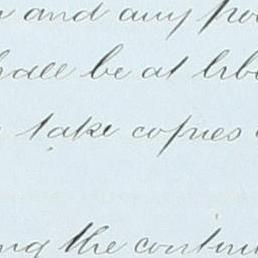 and any
shall be at libe
take copies
ng the continu